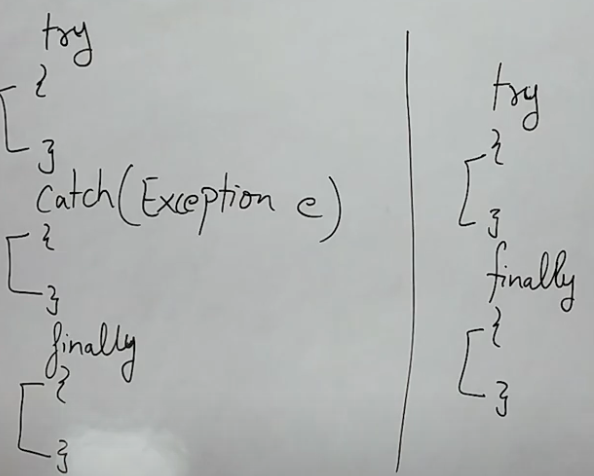 try
{
}
catch(Exception e)
{
}
finally
{
}
try
{
}
finally
{
}